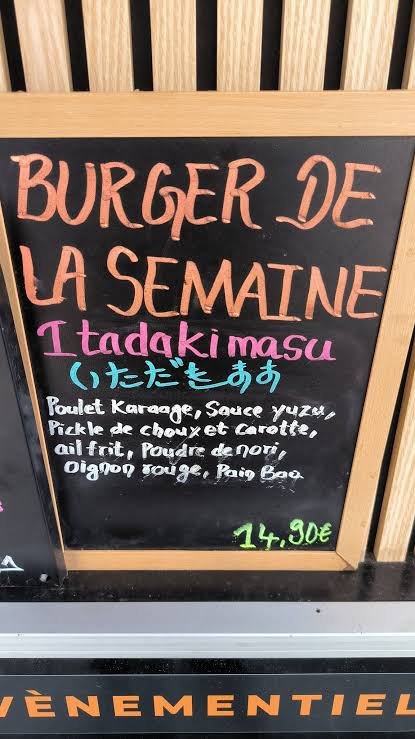 BURGER DE
LA SEMAINE
Itadakimasu
いただきまあ
Poulet Karaage, Sauce yuzu,
Pickle de choux et carotte,
ail frit, Poudre de nori,
Oignon rouge, Pain Bao
14,90€
VÈNEMENTIEL